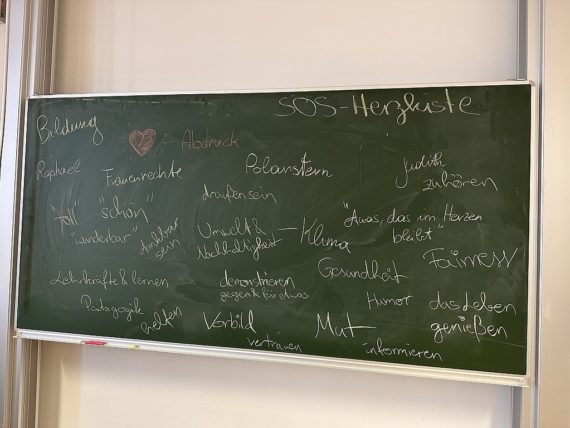 SOS-Herzkiste
Bildung
- Abdruck
Raphael
Frauenrechte
Polarstern
Judith
zuhören
draußen sein
"toll" "schön"
"wunderbar"
dankbar
sein
Umwelt &
Nachhaltigkeit
- Klima
"Etwas, das im Herzen
bleibt"
Fairness
Gesundheit
Lehrkräfte & lernen
demonstrieren
gegen & für etwas
Humor
das Leben
genießen
Pädagogik
Vorbild
Mut
vertrauen
informieren